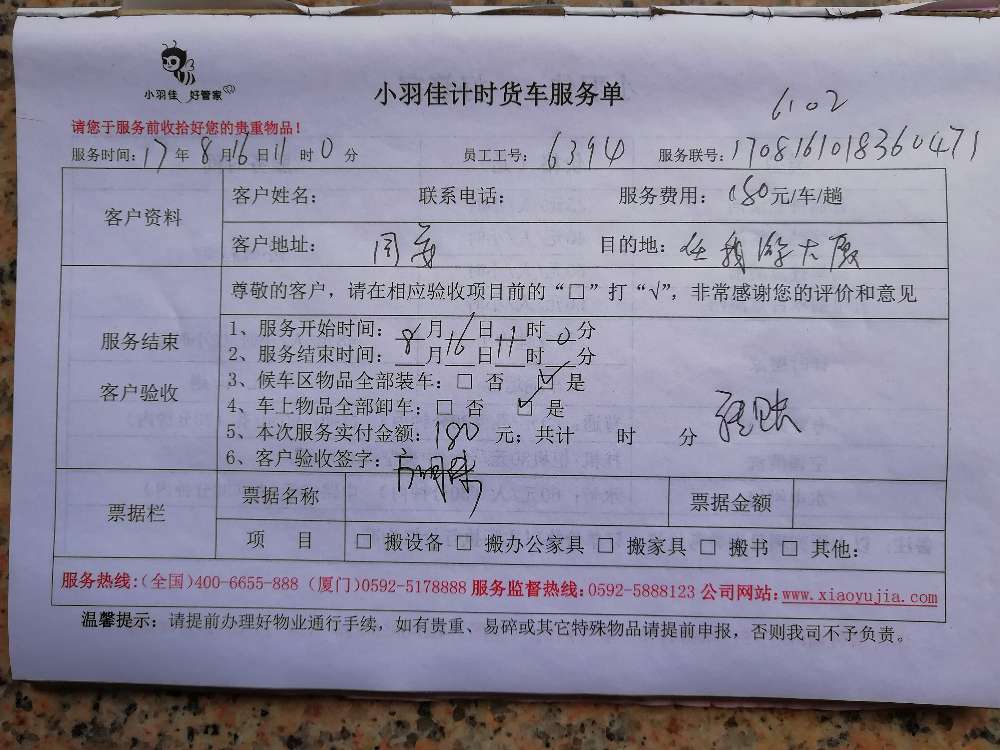 小羽佳 好管家
小羽佳计时货车服务单
6102
请您于服务前收拾好您的贵重物品！
服务时间：17年8月16日11时0分 员工工号：6394 服务联号：1708161018360471
客户资料
客户姓名： 联系电话： 服务费用：180元/车/趟
客户地址： 目的地：任我游大厦
服务结束
客户验收
尊敬的客户，请在相应验收项目前的“□”打“√”，非常感谢您的评价和意见
1、服务开始时间：8月16日11时0分
2、服务结束时间：月日时分
3、候车区物品全部装车：□ 否 ☑ 是
4、车上物品全部卸车：□ 否 ☑ 是
5、本次服务实付金额：180元；共计 时 分
6、客户验收签字：
票据栏
票据名称 票据金额
项 目 □ 搬设备 □ 搬办公家具 □ 搬家具 □ 搬书 □ 其他：
服务热线：(全国)400-6655-888 (厦门)0592-5178888 服务监督热线：0592-5888123 公司网站：www.xiaoyujia.com
温馨提示：请提前办理好物业通行手续，如有贵重、易碎或其它特殊物品请提前申报，否则我司不予负责。